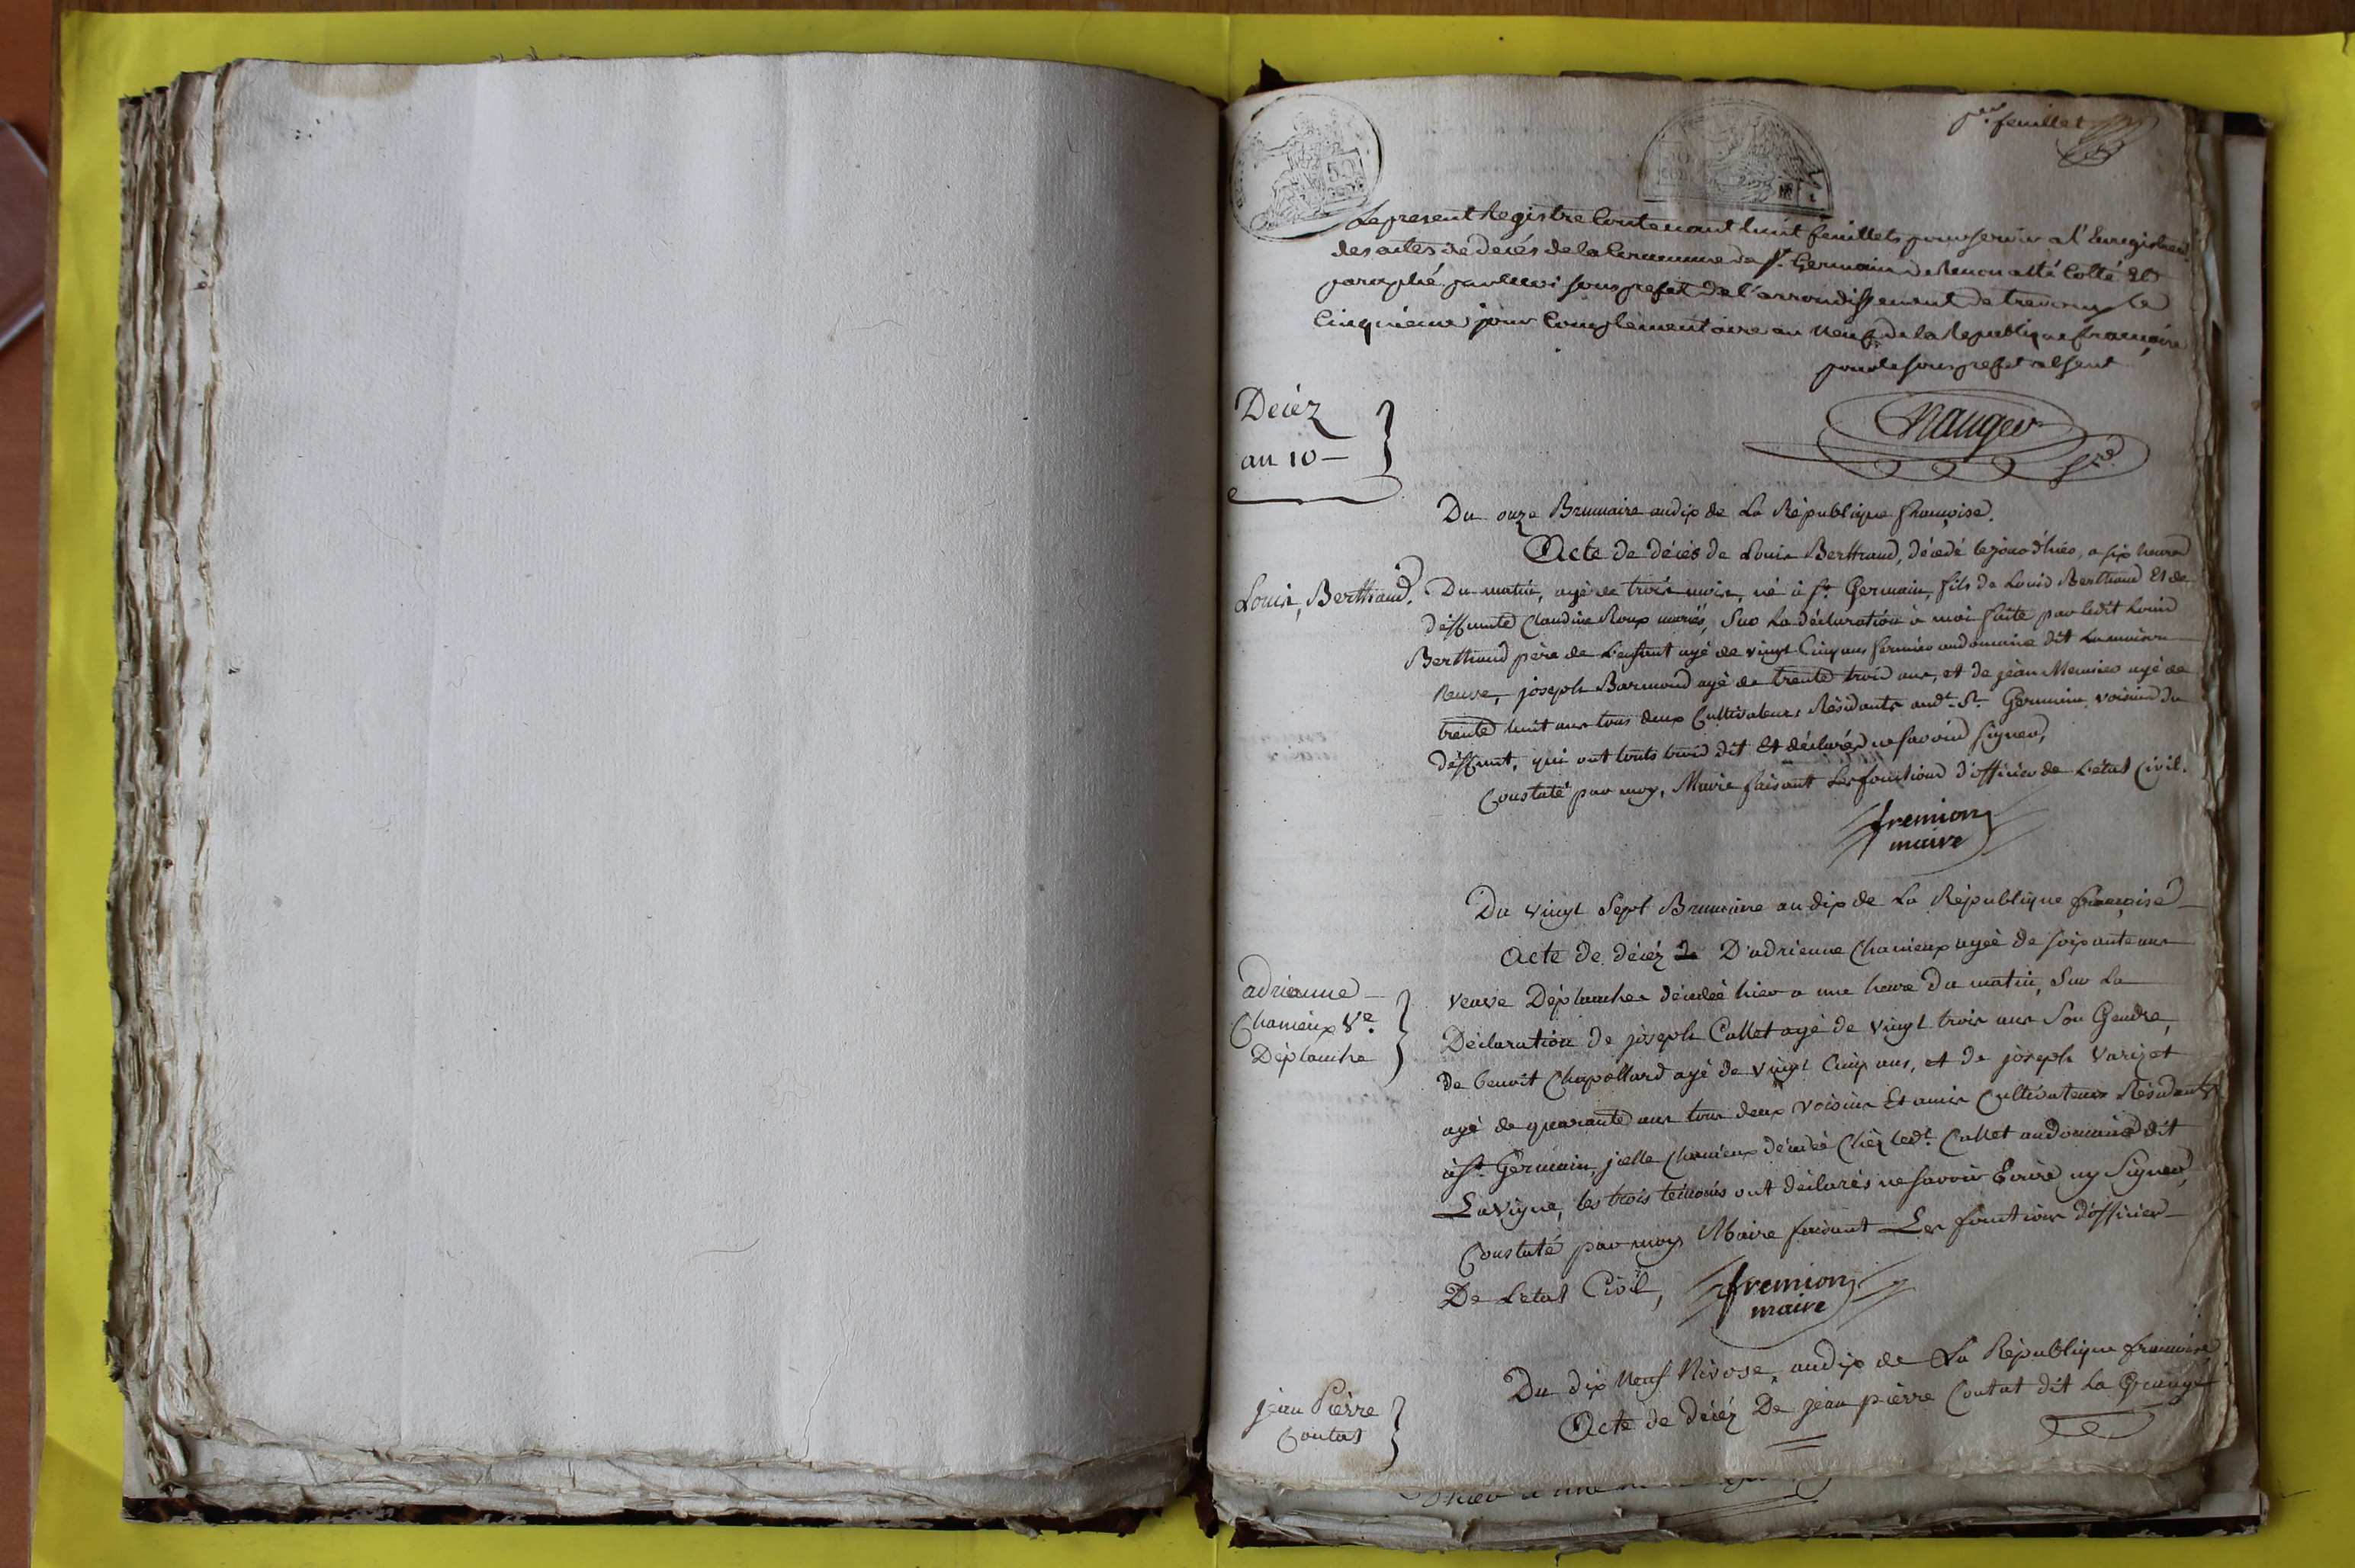 pr. feuillet
Le present Registre Contenant huit feuillets pour servir a l'Enregistremt
des actes de decés de la Commune de st. Germain de Renon a été Cotté et
paraphé par Moi sous prefet de l'arrondissement de trevoux, le
Cinquieme jour Complementaire an neuf de la Republique francaise
pour le sous prefet absent
Dećez
an 10 -
Du onze Brumaire an dix de La République françoise.
Acte de décès de Louis Berthaud, décedé le jour d'hier, a six heures
Louis, Berthaud.
Du matin, agé de trois mois, né à st. Germain, fils de Louis Berthaud Et de
déffunte Claudine Roux mariés, Sur La déclaration à moi faite par ledit Louis
Berthaud père de L'enfant agé de vingt Cinq ans fermier au domaine dit La maison
Neuve, joseph Barmond agé de trente trois ans, et de jean Meunier agé de
trente huit ans tous deux Cultivateurs Résidants audt. St. Germain, voisins du
déffunt, qui ont touts trois dit Et déclarés ne savoir signer,
Constaté par moy, Maire faisant Les fonctions d'officier de L'état Civil.
fremion
maire
Du vingt Sept Brumaire an dix de La République françoise
Acte de décéz D'adrienne Chanieux agée de soixante ans
adrienne
Chanieux Ve.
Déplanche
veuve Déplanche décedée hier a une heure du matin, Sur La
Déclaration de joseph Callet agé de vingt trois ans Son Gendre,
de benoit Chapollard agé de vingt Cinq ans, et de joseph Varizet
agé de quarante ans tous deux voisins Et amis Cultivateurs Résidants
à st. Germain, jcelle Chanieux décedée Chéz ledt. Callet au domaine dit
La vigne, les trois témoins ont déclarés ne savoir Ecrire ny Signer,
Constaté par moy Maire faisant Les fonctions d'officier
De L'etat Civil,
fremion
maire
Du dix Neuf Nivose, an dix de La République francoise
jean Pierre
Contat
Acte de décéz De jean pierre Contat dit La Grange
hier a une